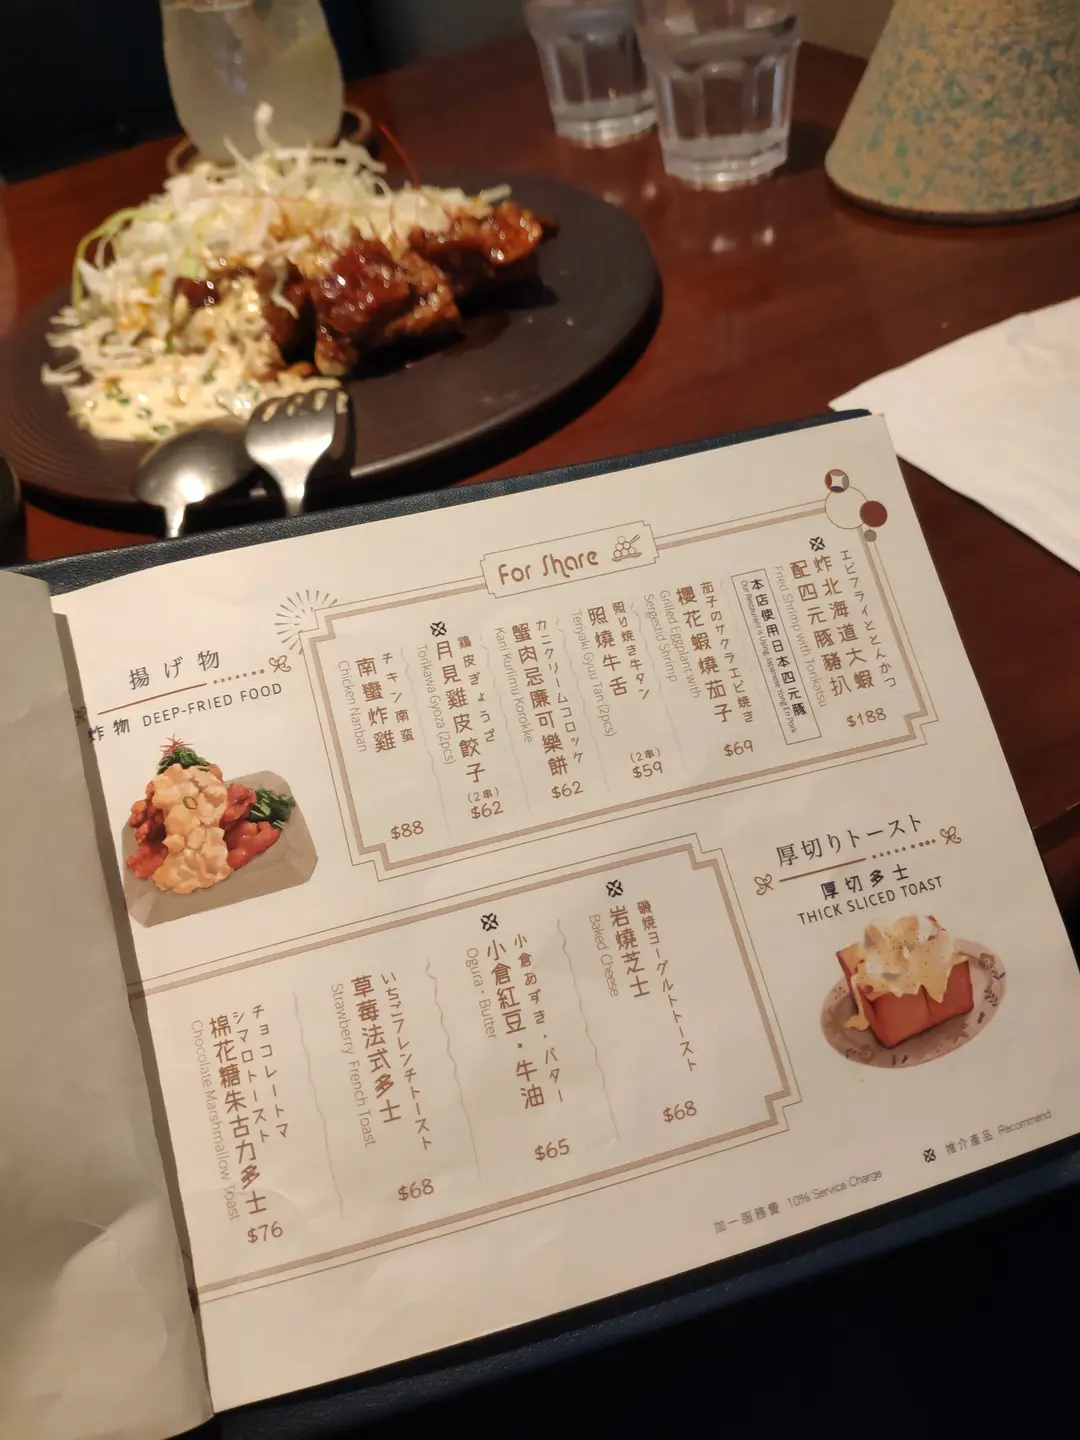 For Share
揚げ物
炸物 DEEP-FRIED FOOD
エビフライととんかつ
炸北海道大蝦
配四元豚豬扒
Fried Shrimp with Tonkatsu
$188
本店使用日本四元豚
Our Restaurant is Using Japanese Yong En Pork
茄子のサクラエビ焼き
櫻花蝦燒茄子
Grilled Eggplant with
Sergestid Shrimp
$69
照り焼き牛タン
照燒牛舌
Teriyaki Gyuu Tan (2pcs)
(2串)
$59
カニクリームコロッケ
蟹肉忌廉可樂餅
Kani Kuriimu Korokke
$62
鶏皮ぎょうざ
月見雞皮餃子
Torikawa Gyoza (2pcs)
(2串)
$62
チキン南蛮
南蠻炸雞
Chicken Nanban
$88
厚切りトースト
厚切多士
THICK SLICED TOAST
磯焼ヨーグルトトースト
岩燒芝士
Baked Cheese
$68
小倉あずき・バター
小倉紅豆・牛油
Ogura・Butter
$65
いちごフレンチトースト
草莓法式多士
Strawberry French Toast
$68
チョコレートマ
シマロトースト
棉花糖朱古力多士
Chocolate Marshmallow Toast
$76
加一服務費 10% Service Charge
推介產品 Recommend